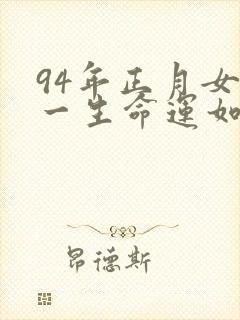 94年正月女
一生命运如
昂德斯